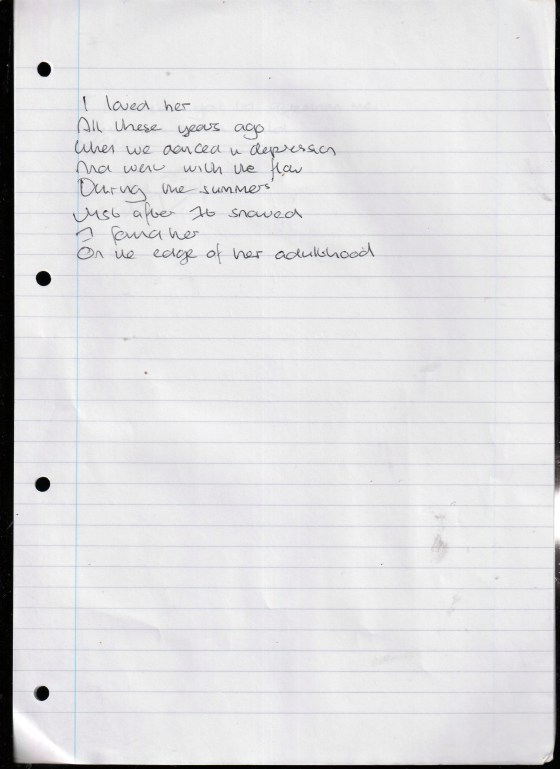 I loved her
All these years ago
When we danced in depression
And went with the flow
During the summers
Just after It snowed
I found her
On the edge of her adulthood